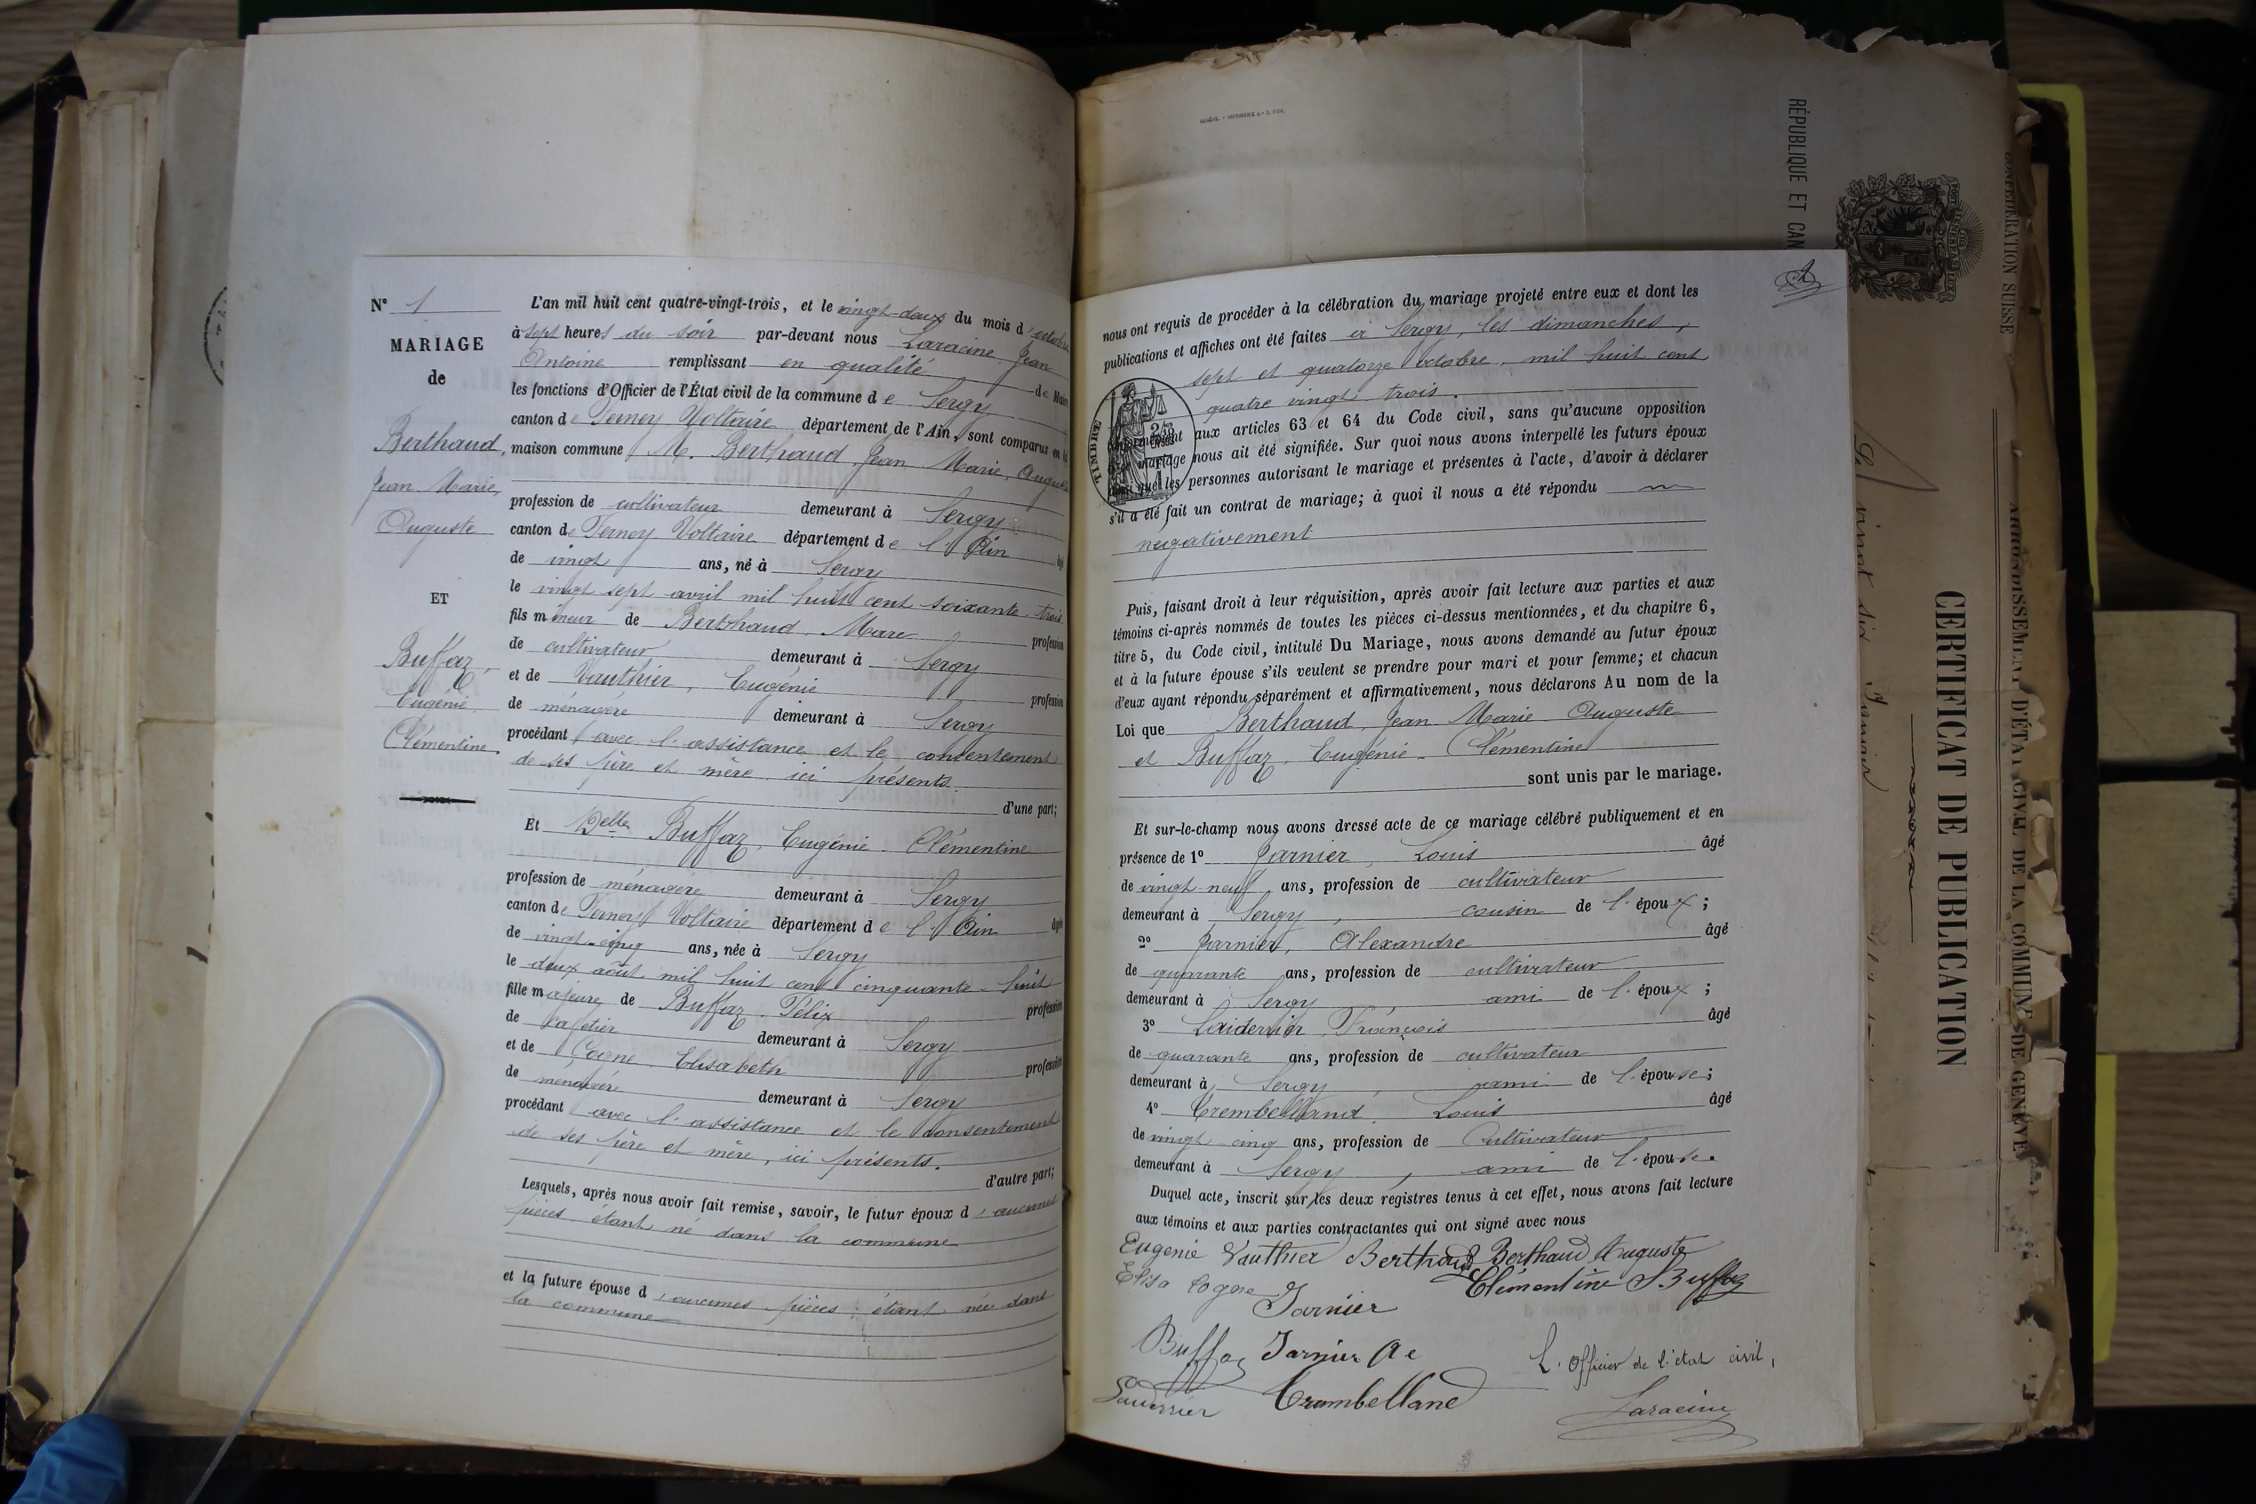 N° 1
MARIAGE
de
Berthaud,
Jean Marie,
Auguste
ET
Buffaz,
Eugénie
Clémentine.
L'an mil huit cent quatre-vingt-trois, et le vingt-deux du mois d'octobre
à sept heures du soir par-devant nous Laracine, Jean
Antoine remplissant en qualité de Maire
les fonctions d'Officier de l'État civil de la commune de Sergy
canton de Ferney Voltaire département de l'Ain, sont comparus en la
maison commune M. Berthaud, Jean Marie, Auguste
profession de cultivateur demeurant à Sergy
canton de Ferney Voltaire département de l'Ain âgé
de vingt ans, né à Sergy
le vingt sept avril mil huit cent soixante trois
fils mineur de Berthaud, Marc profession
de cultivateur demeurant à Sergy
et de Vauthier, Eugénie profession
de ménagère demeurant à Sergy
procédant avec l'assistance et le consentement
de ses père et mère ici présents.
d'une part;
Et Delle Buffaz, Eugénie Clémentine
profession de ménagère demeurant à Sergy
canton de Ferney Voltaire département de l'Ain âgée
de vingt-cinq ans, née à Sergy
le deux août mil huit cent cinquante-huit
fille majeure de Buffaz, Félix profession
de cafetier demeurant à Sergy
et de Cogne Elisabeth profession
de ménagère demeurant à Sergy
procédant avec l'assistance et le consentement
de ses père et mère, ici présents.
d'autre part;
Lesquels, après nous avoir fait remise, savoir, le futur époux d'aucunes
pièces étant né dans la commune
et la future épouse d'aucunes pièces étant née dans
la commune
nous ont requis de procéder à la célébration du mariage projeté entre eux et dont les
publications et affiches ont été faites à Sergy, les dimanches,
sept et quatorze octobre, mil huit cent
quatre vingt trois.
conformément aux articles 63 et 64 du Code civil, sans qu'aucune opposition
au mariage nous ait été signifiée. Sur quoi nous avons interpellé les futurs époux
ainsi que les personnes autorisant le mariage et présentes à l'acte, d'avoir à déclarer
s'il a été fait un contrat de mariage; à quoi il nous a été répondu
négativement
TIMBRE
Puis, faisant droit à leur réquisition, après avoir fait lecture aux parties et aux
témoins ci-après nommés de toutes les pièces ci-dessus mentionnées, et du chapitre 6,
titre 5, du Code civil, intitulé Du Mariage, nous avons demandé au futur époux
et à la future épouse s'ils veulent se prendre pour mari et pour femme; et chacun
d'eux ayant répondu séparément et affirmativement, nous déclarons Au nom de la
Loi que Berthaud, Jean Marie Auguste
et Buffaz, Eugénie-Clémentine
sont unis par le mariage.
Et sur-le-champ nous avons dressé acte de ce mariage célébré publiquement et en
présence de 1° Jarnier, Louis âgé
de vingt-neuf ans, profession de cultivateur
demeurant à Sergy, cousin de l'époux;
2° Jarnier, Alexandre âgé
de quarante ans, profession de cultivateur
demeurant à Sergy ami de l'époux;
3° François âgé
de quarante ans, profession de cultivateur
demeurant à Sergy ami de l'épouse;
4° Trembelland, Louis âgé
de vingt-cinq ans, profession de Cultivateur
demeurant à Sergy, ami de l'épouse.
Duquel acte, inscrit sur les deux registres tenus à cet effet, nous avons fait lecture
aux témoins et aux parties contractantes qui ont signé avec nous
Eugenie Vauthier Berthaud Berthaud Auguste
Elisa Cogne Jarnier Clémentine Buffaz
Buffaz Jarnier
Trembelland
L'officier de l'état civil,
Laracine
CONFÉDÉRATION SUISSE
RÉPUBLIQUE ET CAN
ARRONDISSEMENT D'ÉTAT CIVIL DE LA COMMUNE DE GENÈVE
CERTIFICAT DE PUBLICATION
Le vingt six Janvier